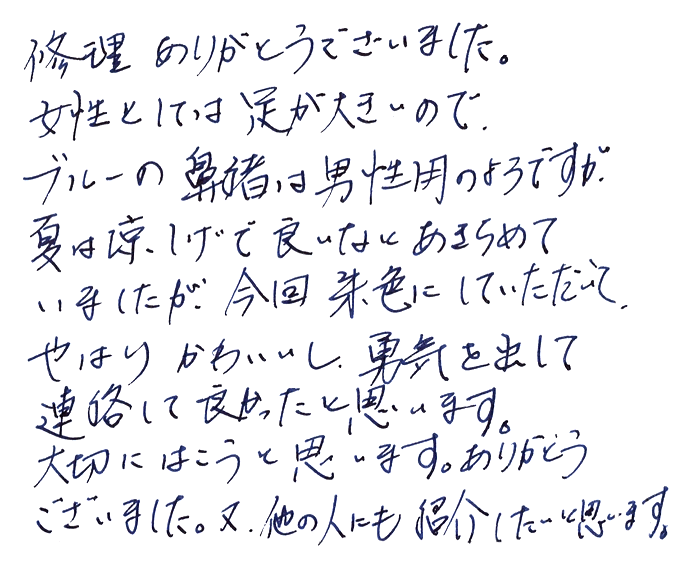 修理 ありがとうございました。
女性としては 足が大きいので、
ブルーの 鼻緒は男性用のようですが、
夏は涼しげで 良いなと あきらめて
いましたが、今回 朱色に していただいて、
やはり かわいいし、勇気を出して
連絡して 良かったと思います。
大切に はこうと思います。ありがとう
ございました。又、他の人にも 紹介したいと思います。